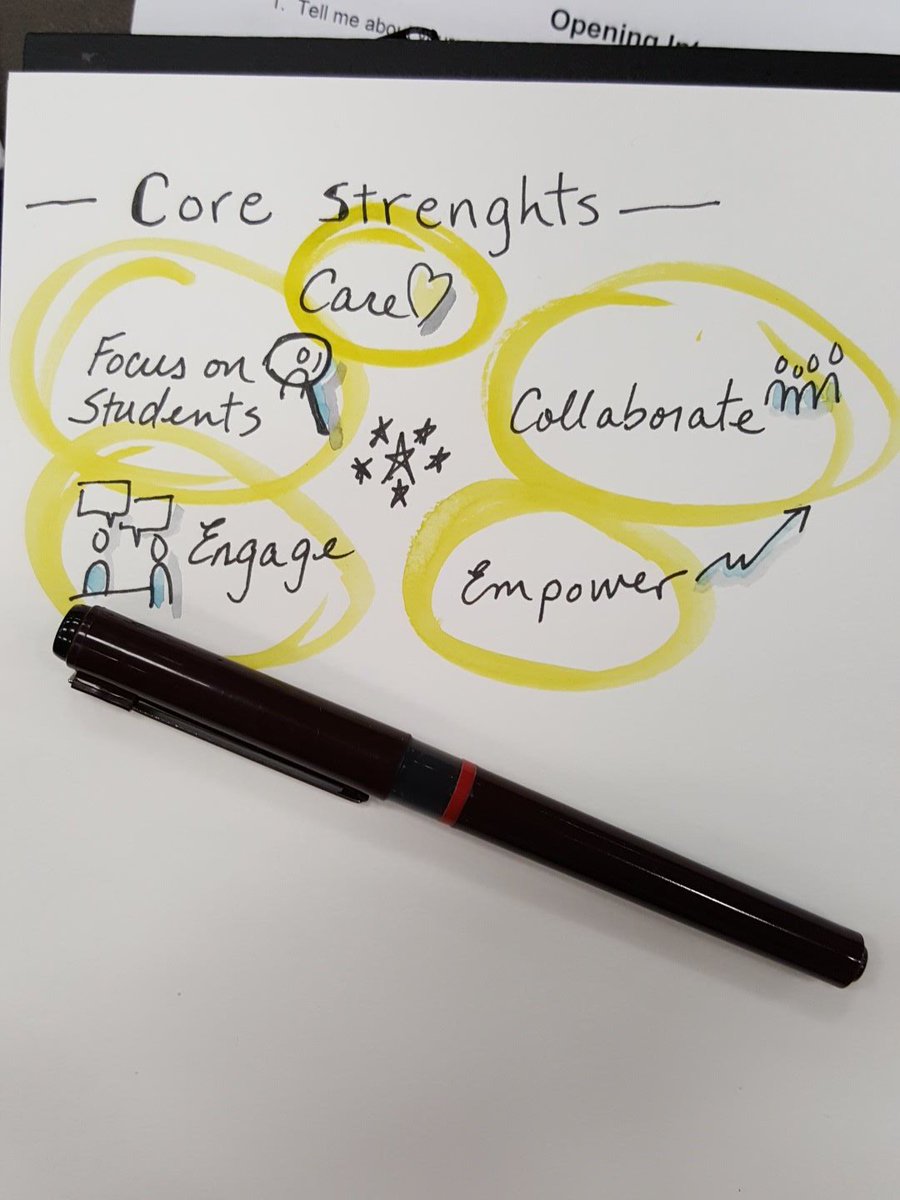 1. Tell me about
Opening
— Core Strenghts —
Care
Focus on
Students
Collaborate
Engage
Empower